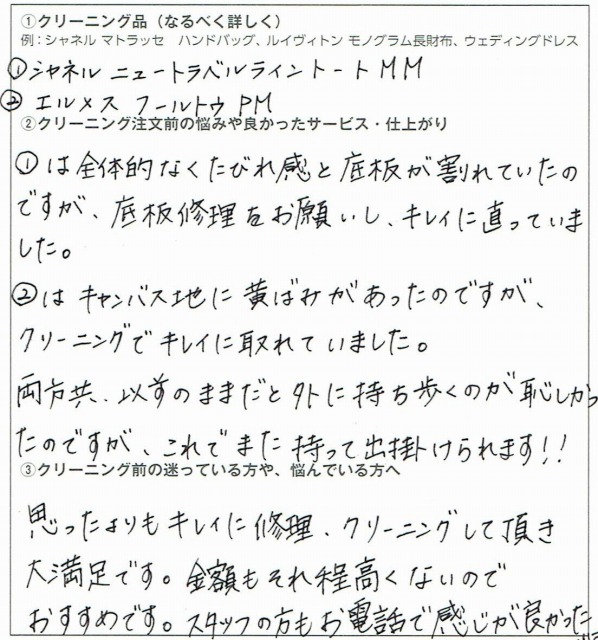 ①クリーニング品（なるべく詳しく）
例：シャネル マトラッセ　ハンドバッグ、ルイヴィトン モノグラム長財布、ウェディングドレス
①シャネル ニュートラベルライントートMM
②エルメス フールトゥPM
②クリーニング注文前の悩みや良かったサービス・仕上がり
①は全体的なくたびれ感と底板が割れていたの
ですが、底板修理をお願いし、キレイに直っていま
した。
②はキャンバス地に黄ばみがあったのですが、
クリーニングでキレイに取れていました。
両方共、以前のままだと外に持ち歩くのが恥しかっ
たのですが、これでまた持って出掛けられます!!
③クリーニング前の迷っている方や、悩んでいる方へ
思ったよりもキレイに修理、クリーニングして頂き
大満足です。金額もそれ程高くないので
おすすめです。スタッフの方もお電話で感じが良かった